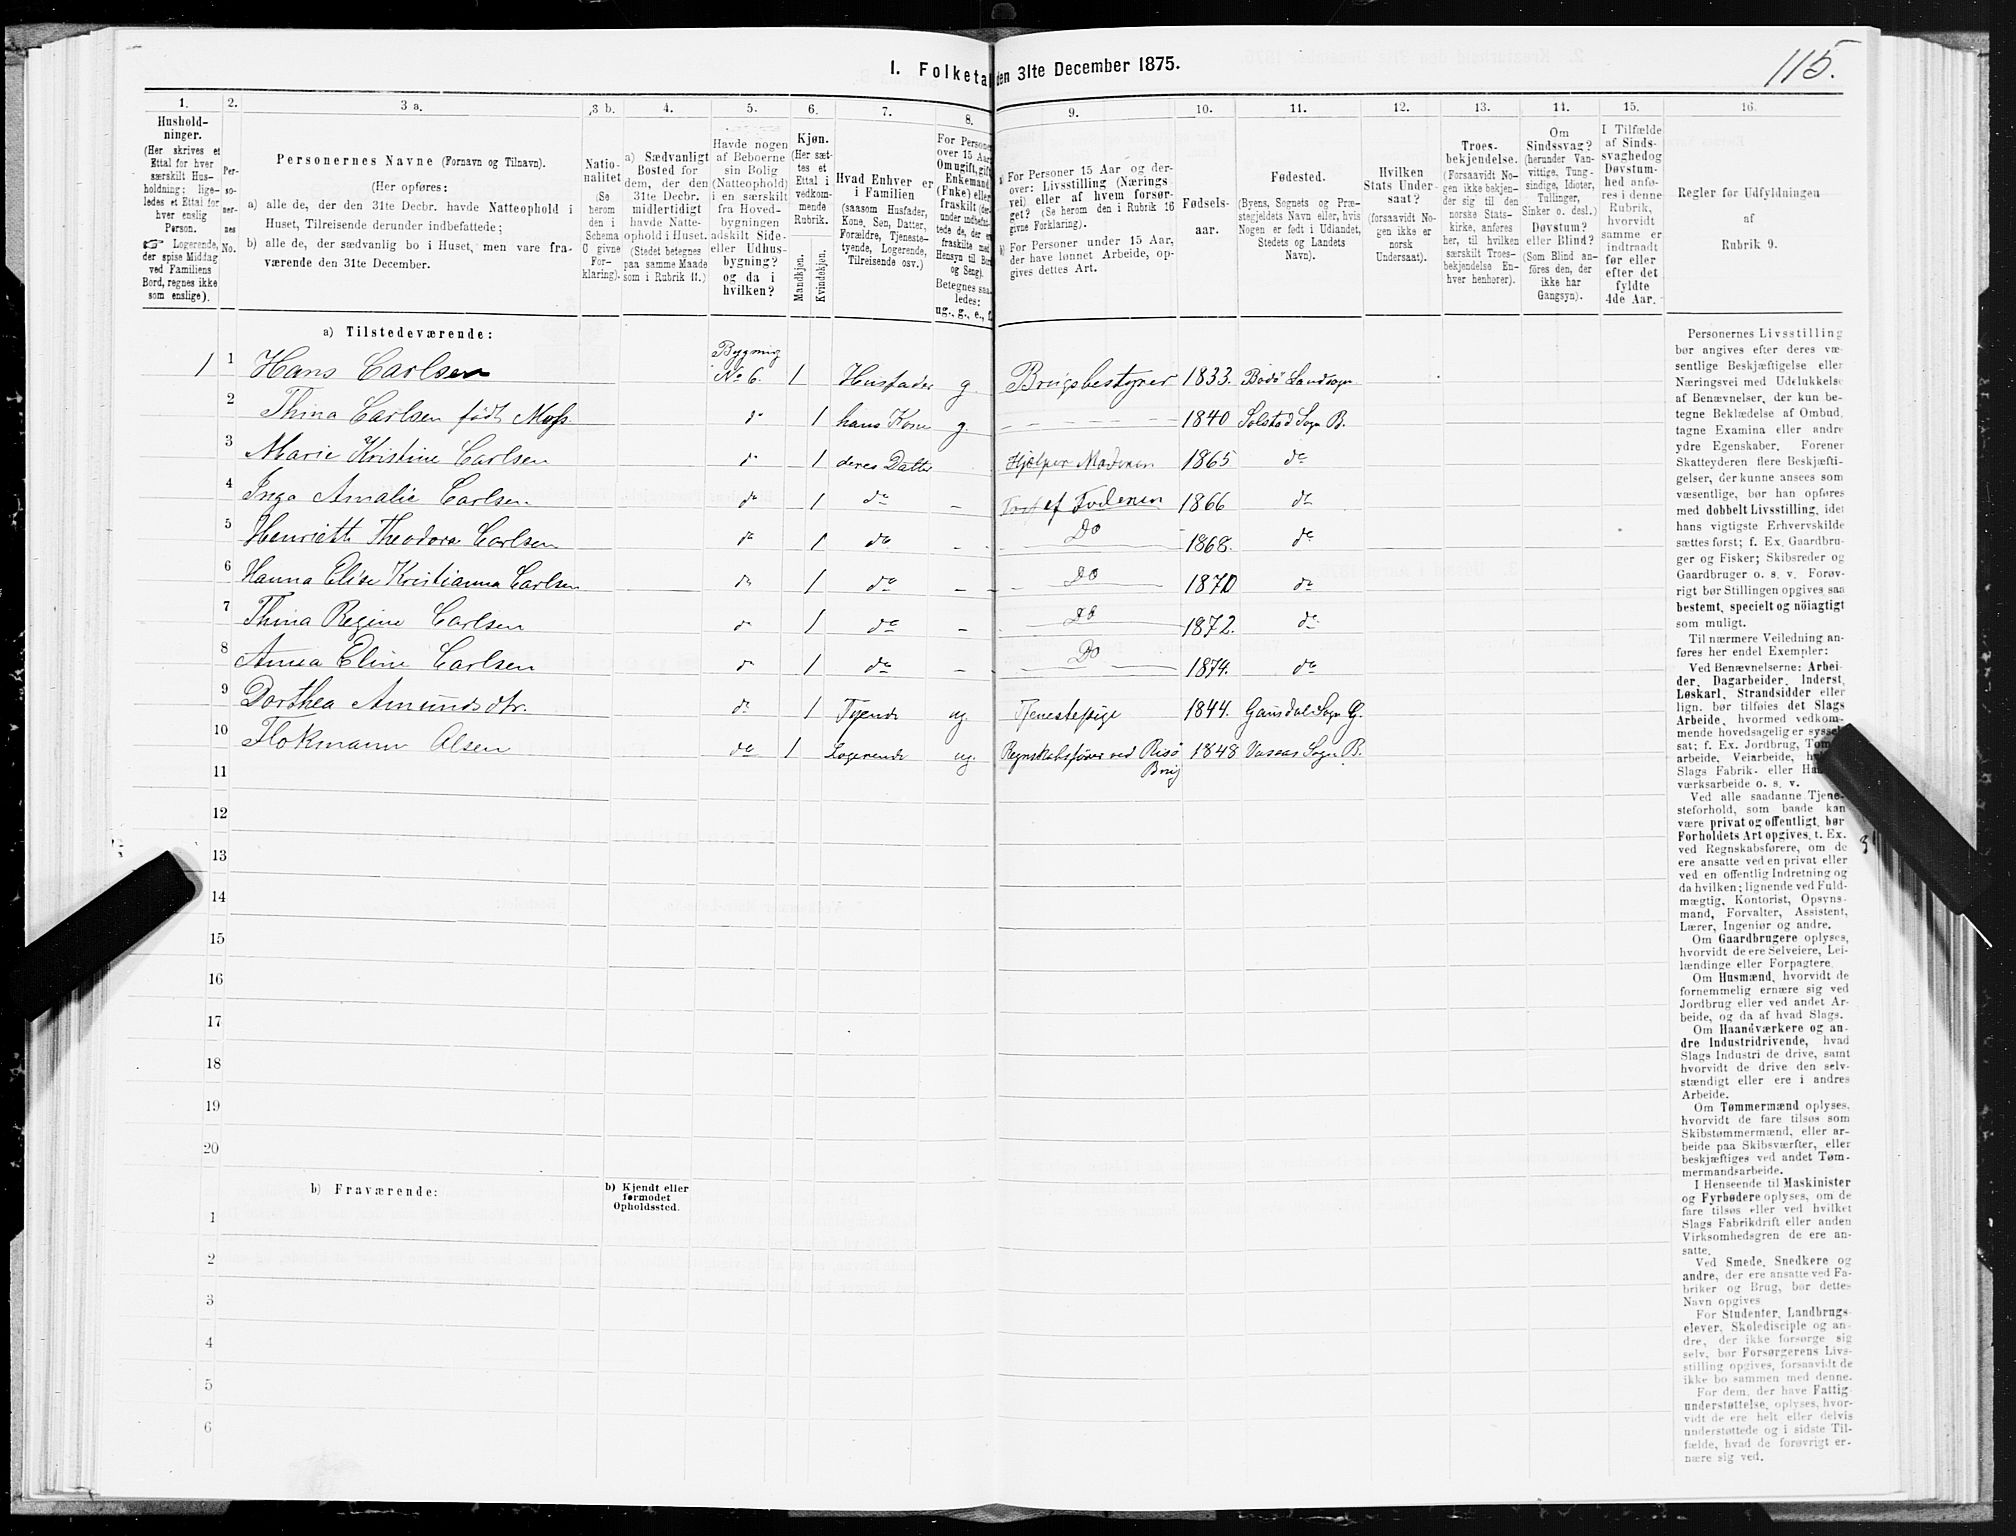 115.
I. Folketal den 31te December 1875.
1. 2. 3 a. 3 b. 4. 5. 6. 7. 8. 9. 10. 11. 12. 13. 14. 15. 16.
Hushold-
ninger.
(Her skrives et
Ettal for hver
særskilt Hus-
holdning; lige-
ledes et Ettal for
hver enslig
Person.
☞ Logerende,
der spise Middag
ved Familiens
Bord, regnes ikke
som enslige).
Per-
so-
ner-
nes
No.
Personernes Navne (Fornavn og Tilnavn).
(Her opføres:
a) alle de, der den 31te Decbr. havde Natteophold i
Huset, Tilreisende derunder indbefattede;
b) alle de, der sædvanlig bo i Huset, men vare fra-
værende den 31te December.
Natio-
nalitet
(Se
herom
den i
Schema
O givne
For-
klaring).
a) Sædvanligt
Bosted for
dem, der den
31te Decbr.
midlertidigt
havde Natte-
ophold i Huset.
(Stedet betegnes
paa samme Maade
som i Rubrik 11.)
Havde nogen
af Beboerne
sin Bolig
(Natteophold)
i en særskilt
fra Hoved-
bygningen
adskilt Side-
eller Udhus-
bygning?
og da i
hvilken?
Kjøn.
(Her sæt-
tes et
Ettal i
vedkom-
mende
Rubrik.
Mandkjøn.
Kvindekjøn.
Hvad Enhver er
i Familien
(saasom Husfader,
Kone, Søn, Datter,
Forældre, Tjeneste-
tyende, Logerende,
Tilreisende osv.)
For Personer
over 15 Aar:
Om ugift, gift,
Enkemand
(Enke) eller
fraskilt (der-
under indbefat-
tede de, der ere
fraskilte med
Hensyn til Bord
og Seng).
Betegnes saa-
ledes:
ug., g., e., f.
a) For Personer 15 Aar og der-
over: Livsstilling (Nærings
vei) eller af hvem forsør-
get? (Se herom den i Rubrik 16
givne Forklaring).
b) For Personer under 15 Aar,
der have lønnet Arbeide, op-
gives dettes Art.
Fødsels-
aar.
Fødested.
(Byens, Sognets og Præ-
stegjeldets Navn eller, hvis
Nogen er født i Udlandet,
Stedets og Landets
Navn).
Hvilken
Stats Under-
saat?
(forsaavidt No-
gen ikke er
norsk
Undersaat).
Troes-
bekjendelse.
(Forsaavidt No-
gen ikke bekjen-
der sig til den
norske Stats-
kirke, anføres
her, til hvilken
særskilt Troes-
bekjendelse En-
hver henhører).
Om
Sindssvag?
(herunder Van-
vittige, Tung-
sindige, Idioter,
Tullinger,
Sinker o. desl.)
Døvstum?
eller Blind?
(Som Blind an-
føres den, der
ikke har
Gangsyn).
I Tilfælde
af Sinds-
svaghed og
Døvstum-
hed anfø-
res i denne
Rubrik,
hvorvidt
samme er
indtraadt
før eller
efter det
fyldte
4de Aar.
Regler for Udfyldningen
af
Rubrik 9.
a) Tilstedeværende:
1 1 Hans Carlsen Bygning No 6. 1 Husfader g. Brugsbestyrer 1833. Bodø Landsogn
2 Thina Carlsen født Moss. do 1 hans Kone g. 1840 Solstad Sogn B.
3 Marie Kristine Carlsen do 1 deres Datter Hjælper Moderen 1865 do
4 Inga Amalie Carlsen do 1 do - Fors. af Faderen 1866 do
5 Henriette Theodora Carlsen do 1 do - Do 1868. do
6 Hanna Elise Kristianna Carlsen do 1 do - Do 1870 do
7 Thina Regine Carlsen do 1 do - Do 1872. do
8 Anna Eline Carlsen do 1 do - Do 1874. do
9 Dorthea Amundsdtr. do 1 Tyende ug. Tjenestepige 1844. Gausdal Sogn G.
10 Olsen do 1 Logerende ug. Regnskabsfører ved Risø Brug 1848 Sogn B.
11
12
13
14
15
16
17
18
19
20
b) Fraværende:
b) Kjendt eller
formodet
Opholdssted.
1
2
3
4
5
6
Personernes Livsstilling
bør angives efter deres væ-
sentlige Beskjæftigelse eller
Næringsvei med Udelukkelse
af Benævnelser, der kun be-
tegne Beklædelse af Ombud,
tagne Examina eller andre
ydre Egenskaber. Forener
Skatteyderen flere Beskjæfti-
gelser, der kunne ansees som
væsentlige, bør han opføres
med dobbelt Livsstilling, idet
hans vigtigste Erhvervskilde
sættes først; f. Ex. Gaardbru-
ger og Fisker; Skibsreder og
Gaardbruger o. s. v. Forøv-
rigt bør Stillingen opgives saa
bestemt, specielt og nöiagtigt
som muligt.
Til nærmere Veiledning an-
føres her endel Exempler:
Ved Benævnelserne: Arbei-
der, Dagarbeider, Inderst,
Løskarl, Strandsidder eller
lign. bør tilføies det Slags
Arbeide, hvormed vedkom-
mende hovedsagelig er syssel-
sat; f. Ex. Jordbrug, Tom-
arbeide, Veiarbeide,
Slags Fabrik- eller Ha
værksarbeide o. s. v.
Ved alle saadanne Tjene-
steforhold, som baade kan
være privat og offentligt, bør
Forholdets Art opgives, t. Ex.
ved Regnskabsførere, om de
ere ansatte ved en privat eller
ved en offentlig Indretning og
da hvilken; lignende ved Fuld-
mægtig, Kontorist, Opsyns-
mand, Forvalter, Assistent,
Lærer, Ingeniør og andre.
Om Gaardbrugere oplyses,
hvorvidt de ere Selveiere, Lei-
lændinge eller Forpagtere.
Om Husmænd, hvorvidt de
fornemmelig ernære sig ved
Jordbrug eller ved andet Ar-
beide, og da af hvad Slags.
Om Haandværkere og an-
dre Industridrivende, hvad
Slags Industri de drive, samt
hvorvidt de drive den selv-
stændigt eller ere i andres
Arbeide.
Om Tømmermænd oplyses,
hvorvidt de fare tilsøs som
Skibstømmermænd, eller ar-
beide paa Skibsværfter, eller
beskjæftiges ved andet Tøm-
mermandsarbeide.
I Henseende til Maskinister
og Fyrbødere oplyses, om de
fare tilsøs eller ved hvilket
Slags Fabrikdrift eller anden
Virksomhedsgren de ere an-
satte.
Ved Smede, Snedkere og
andre, der ere ansatte ved Fa-
briker og Brug, bør dettes
Navn opgives
For Studenter, Landbrugs-
elever, Skoledisciple og an-
dre, der ikke forsørge sig
selv, bør Forsørgerens Livs-
stilling opgives, forsaavidt de
ikke bo sammen med denne.
For dem, der have Fattig-
understøttelse, oplyses, hvor-
vidt de ere helt eller delvis
understøttede og i sidste Til-
fælde, hvad de forøvrigt er-
nære sig ved.